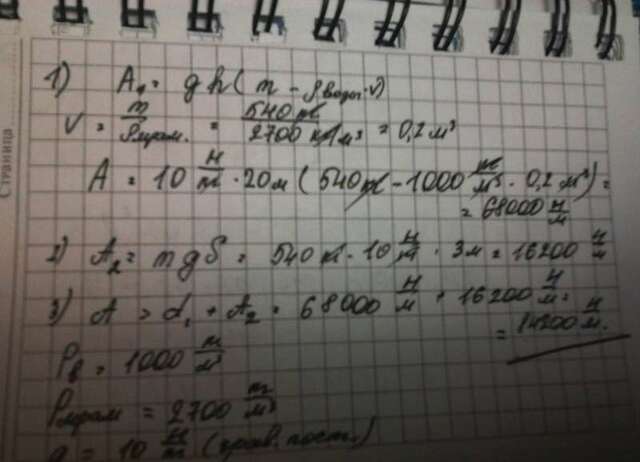 Страница
1) A₁ = gh(m - ρводы·V)
V = m/ρмрам. = 540 кг/2700 кг/м³ = 0,2 м³
A = 10 Н/кг · 20 м (540 кг - 1000 кг/м³ · 0,2 м³) =
= 68000 Н/м
2) A₂ = mgS = 540 кг · 10 Н/кг · 3 м = 16200 Н/м
3) A = A₁ + A₂ = 68000 Н/м + 16200 Н/м =
= 14200 Н/м.
ρв = 1000 кг/м³
ρмрам = 2700 кг/м³
g = 10 Н/кг (грав. пост.)